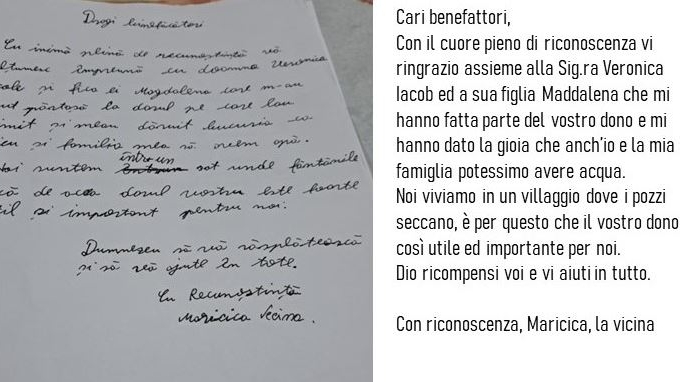 Dragi binefăcători
Cu inimă plină de recunoștință vă
împreună cu doamna Veronica
și fica ei Magdalena care m-au
părtașă la darul pe care lau
și meau dăruit bucuria ca
eu și familia mea să avem apă.
suntem într-un sat unde fântânile
de acea darul vostru este foarte
și important pentru noi.
Dumnezeu să vă răsplătească
și să vă ajute în tote.
Cu Recunoștință
Maricica Vecina.
Cari benefattori,
Con il cuore pieno di riconoscenza vi
ringrazio assieme alla Sig.ra Veronica
Iacob ed a sua figlia Maddalena che mi
hanno fatta parte del vostro dono e mi
hanno dato la gioia che anch'io e la mia
famiglia potessimo avere acqua.
Noi viviamo in un villaggio dove i pozzi
seccano, è per questo che il vostro dono
così utile ed importante per noi.
Dio ricompensi voi e vi aiuti in tutto.
Con riconoscenza, Maricica, la vicina